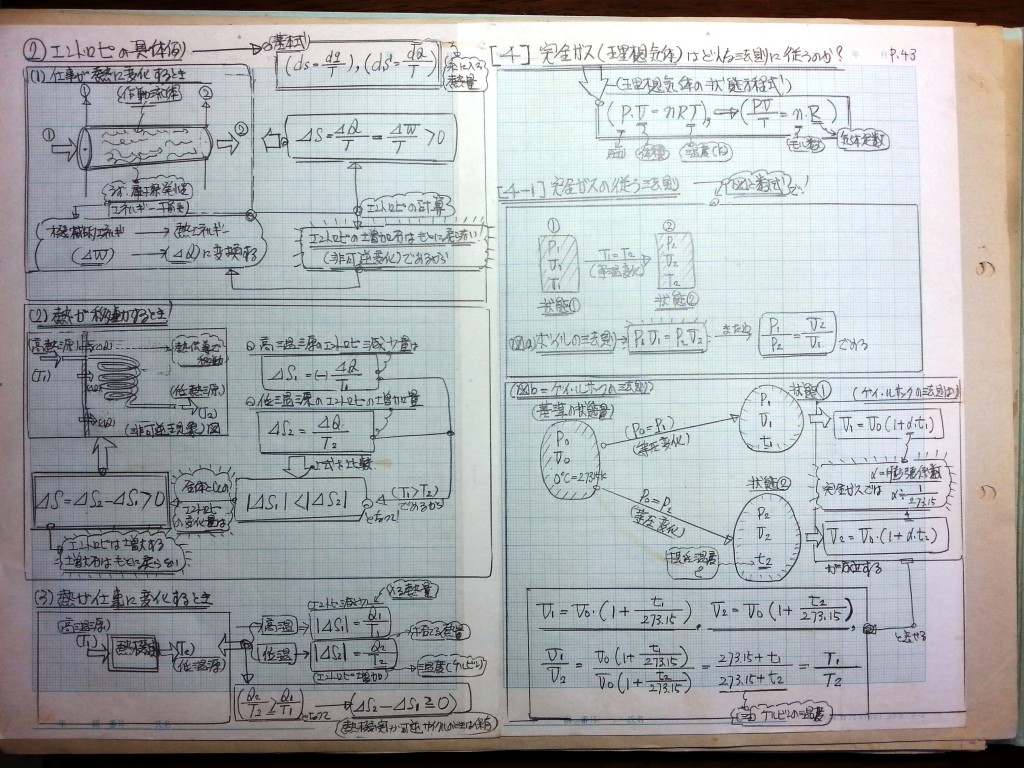 ② エントロピの具体例
基本式
(ds = dq/T), (dS = dQ/T)
系に入る熱量
(1) 仕事が熱に変化するとき
作動流体
① ②
ΔS = ΔQ/T = ΔW/T > 0
エネルギー
機械的エネルギー → 熱エネルギー
(ΔW) → (ΔQ)に変換する
エントロピの計算
エントロピの増加分はもとに戻らない!
(非可逆変化)であるから
(2) 熱が移動するとき
高熱源
(T1)
(低熱源)
(T2)
(非可逆現象)図
高温源のエントロピ減少量は
ΔS1 = (-) ΔQ/T1
低温源のエントロピの増加量
ΔS2 = ΔQ/T2
上式を比較
|ΔS1| < |ΔS2|
(T1 > T2)
であるから
となって!
全体としての
エントロピ
の変化量は
ΔS = ΔS2 - ΔS1 > 0
エントロピは増大する
増大分はもとに戻らない
(3) 熱が仕事に変化するとき
高温源
(T1)
熱機関
(T2)
(低温源)
高温
エントロピ減少
|ΔS1| = Q1/T1
入る熱量
低温
|ΔS2| = Q2/T2
(エントロピ増加)
捨てる熱量
温度(ケルビン)
(Q2/T2 ≧ Q1/T1)
となって
(ΔS2 - ΔS1 ≧ 0)
P.43
[4] 完全ガス(理想気体)はどんな法則に従うのか?
(理想気体の状態方程式)
(P·V = nRT), → (PV/T = n·R)
圧力 体積 温度(K) モル数 気体定数
[4-1] 完全ガスの従う法則
図と数式で!
①
P1
V1
T1
状態①
T1 = T2
(等温変化)
②
P2
V2
T2
状態②
図(a) ボイルの法則 → P1V1 = P2V2 または P1/P2 = V2/V1 である
(図b = ゲイ・ルサックの法則)
(基準の状態量)
P0
V0
0℃=273.15K
(P0 = P1)
(等圧変化)
状態①
P1
V1
t1
(ゲイ・ルサックの法則より)
V1 = V0(1+α·t1)
α=膨張係数
完全ガスでは
α≒ 1/273.15
P0 = P2
(等圧変化)
状態②
P2
V2
t2
V2 = V0·(1+α·t2)
が成立する
V1 = V0·(1 + t1/273.15), V2 = V0(1 + t2/273.15),
と表せる
V1/V2 = V0(1 + t1/273.15)/V0(1 + t2/273.15) = 273.15 + t1/273.15 + t2 = T1/T2
ケルビンの温度